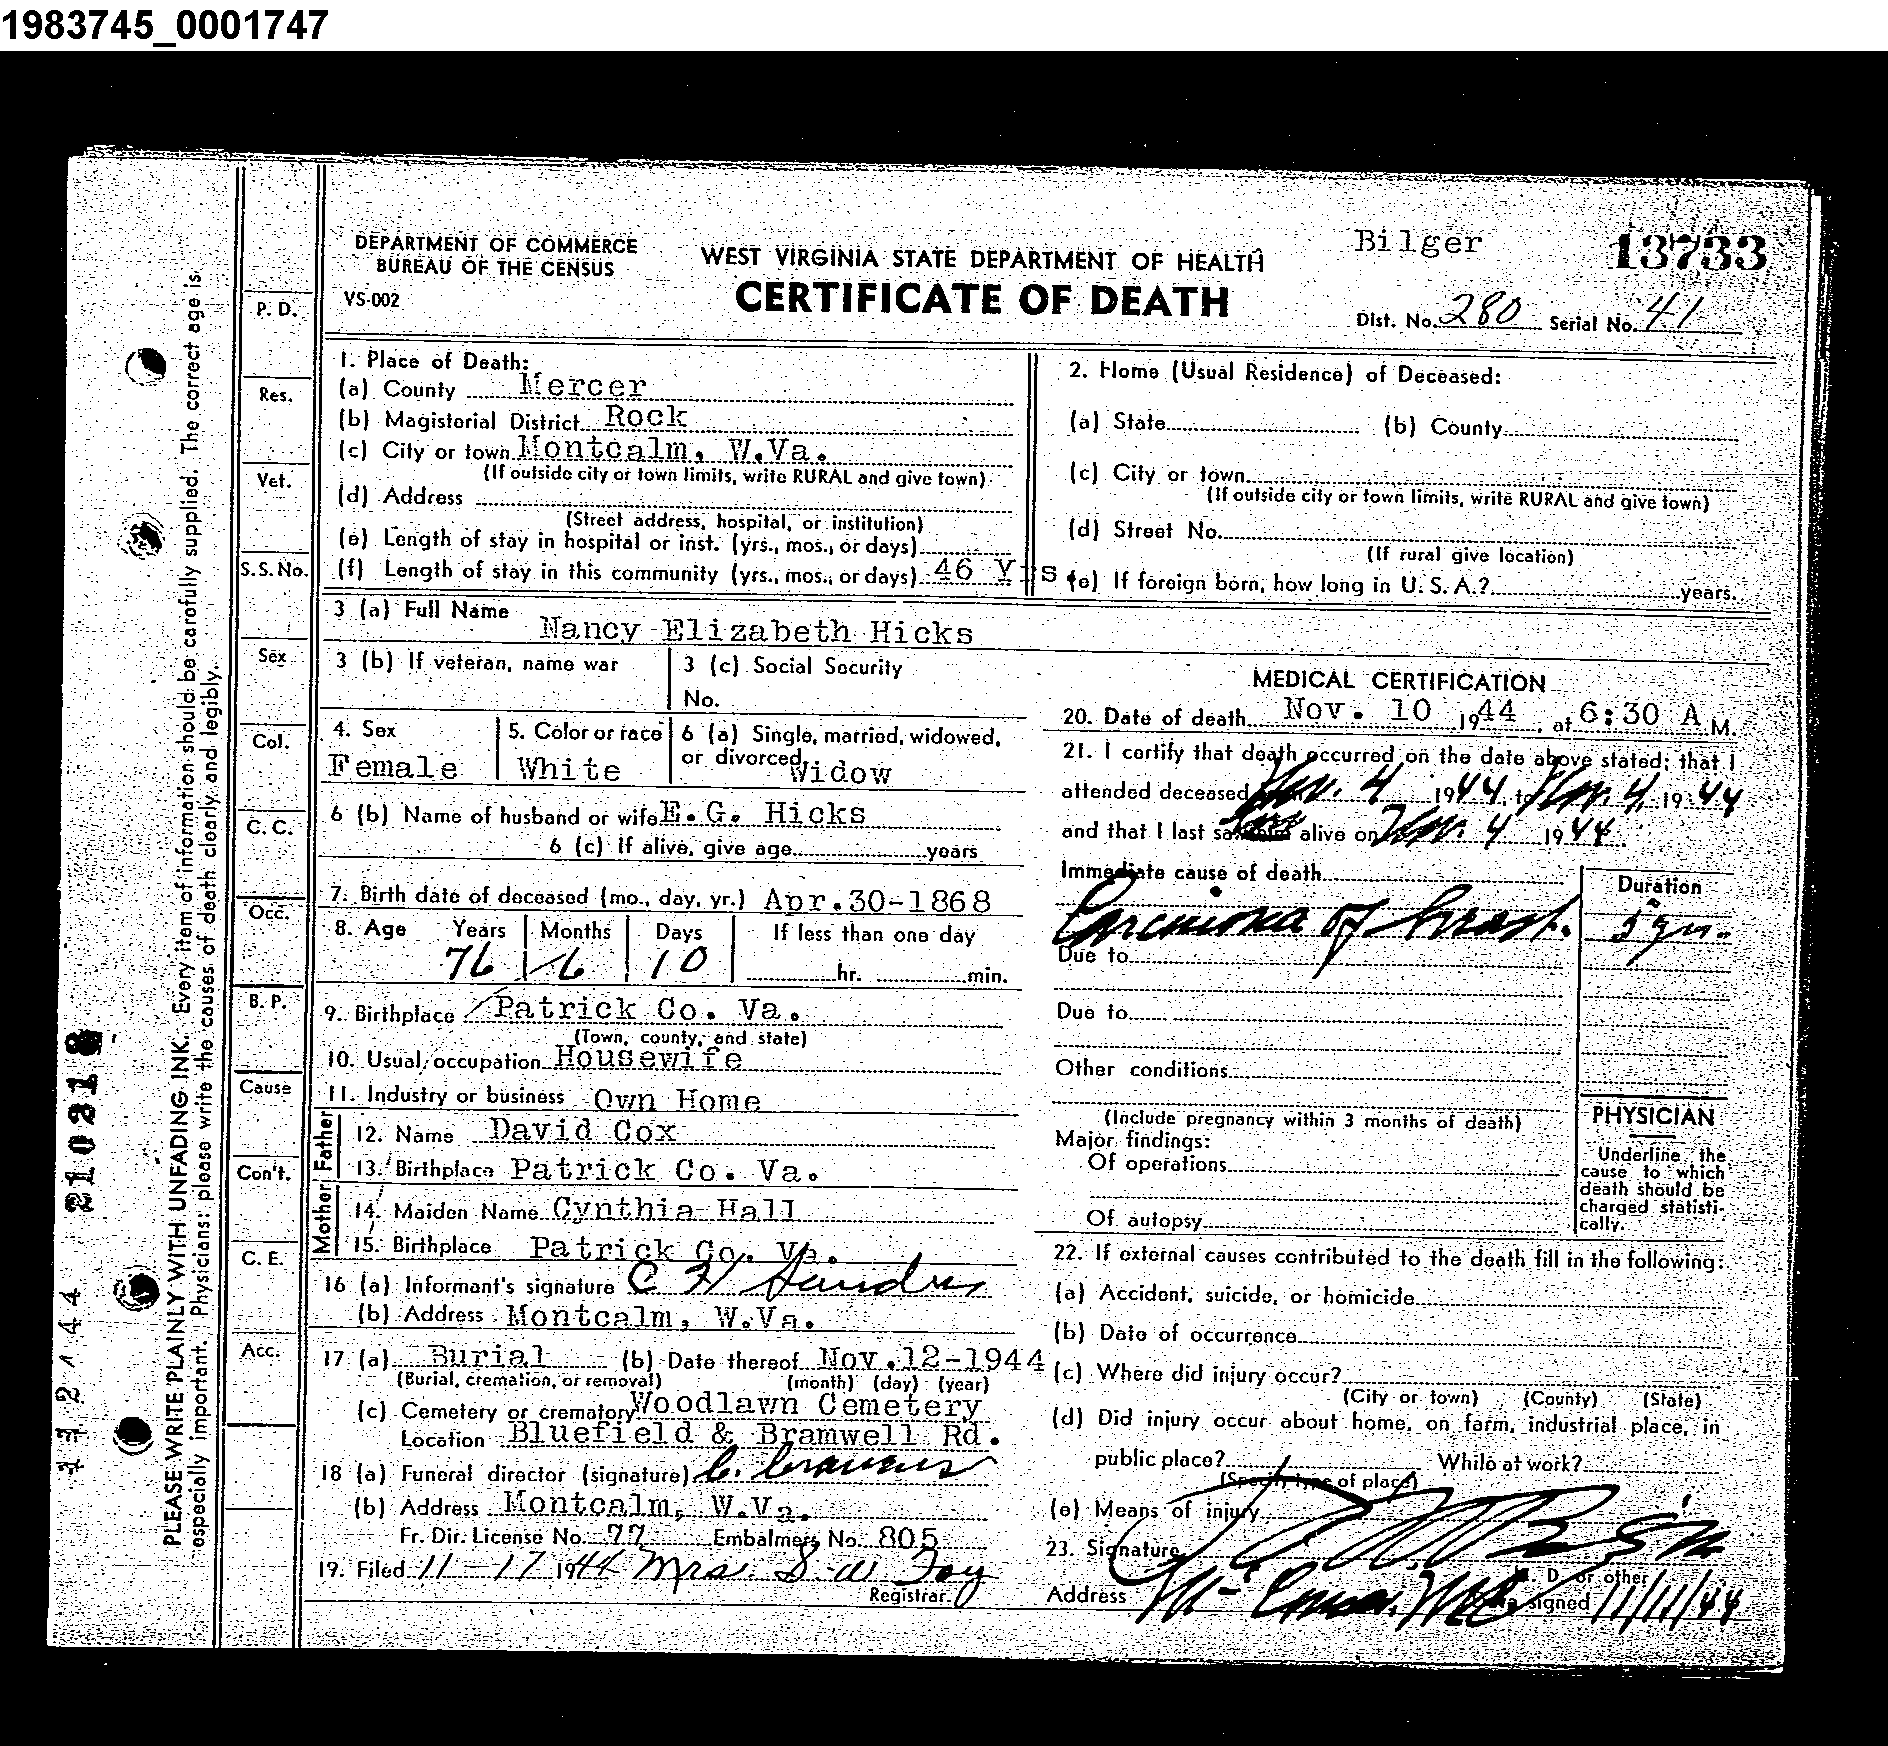 1983745_0001747
DEPARTMENT OF COMMERCE
BUREAU OF THE CENSUS
VS-002
WEST VIRGINIA STATE DEPARTMENT OF HEALTH
CERTIFICATE OF DEATH
Bilger
13733
Dist. No. 280 Serial No. 41
PLEASE WRITE PLAINLY WITH UNFADING INK. Every item of information should be carefully supplied. The correct age is
especially important. Physicians: please write the causes of death clearly and legibly.
P. D.
Res.
Vet.
S.S. No.
Sex
Col.
C. C.
Occ.
B. P.
Cause
Con't.
C. E.
Acc.
1. Place of Death:
(a) County Mercer
(b) Magisterial District Rock
(c) City or town Montcalm, W.Va.
(If outside city or town limits, write RURAL and give town)
(d) Address
(Street address, hospital, or institution)
(e) Length of stay in hospital or inst. (yrs., mos., or days)
(f) Length of stay in this community (yrs., mos., or days) 46 Yrs
2. Home (Usual Residence) of Deceased:
(a) State (b) County
(c) City or town
(If outside city or town limits, write RURAL and give town)
(d) Street No.
(If rural give location)
(e) If foreign born, how long in U. S. A.? years.
3 (a) Full Name Nancy Elizabeth Hicks
3 (b) If veteran, name war
3 (c) Social Security
No.
4. Sex
Female
5. Color or race
White
6 (a) Single, married, widowed,
or divorced Widow
6 (b) Name of husband or wife E. G. Hicks
6 (c) If alive, give age years
7. Birth date of deceased (mo., day, yr.) Apr.30-1868
8. Age Years Months Days If less than one day
76 6 10 hr. min.
9. Birthplace Patrick Co. Va.
(Town, county, and state)
10. Usual occupation Housewife
11. Industry or business Own Home
Father
12. Name David Cox
13. Birthplace Patrick Co. Va.
Mother
14. Maiden Name Cynthia Hall
15. Birthplace Patrick Co. Va.
16 (a) Informant's signature C H Sanders
(b) Address Montcalm, W.Va.
17 (a) Burial (b) Date thereof Nov.12-1944
(Burial, cremation, or removal) (month) (day) (year)
(c) Cemetery or crematory Woodlawn Cemetery
Location Bluefield & Bramwell Rd.
18 (a) Funeral director (signature) C. Cravens
(b) Address Montcalm, W.Va.
Fr. Dir. License No. 77 Embalmers No. 805
19. Filed 11-17 1944 Mrs. S. W. Foy
Registrar.
MEDICAL CERTIFICATION
20. Date of death Nov. 10 1944, at 6:30 A M.
21. I certify that death occurred on the date above stated; that I
attended deceased Nov. 4 1944, to Nov. 4, 1944
and that I last saw alive on Nov. 4 1944.
Immediate cause of death Duration
Carcinoma of breast. 5 yrs.
Due to
Due to
Other conditions
(Include pregnancy within 3 months of death)
Major findings:
Of operations
Of autopsy
PHYSICIAN
Underline the
cause to which
death should be
charged statisti-
cally.
22. If external causes contributed to the death fill in the following:
(a) Accident, suicide, or homicide
(b) Date of occurrence
(c) Where did injury occur?
(City or town) (County) (State)
(d) Did injury occur about home, on farm, industrial place, in
public place? While at work?
(Specify type of place)
(e) Means of injury
23. Signature
D. or other
Address signed 11/11/44